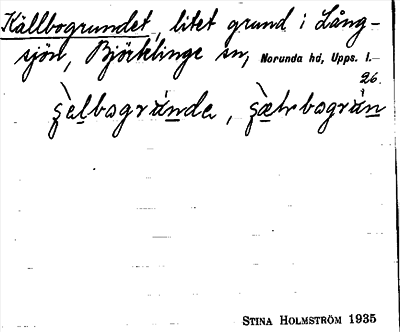 Källbogrundet, litet grund i Lång-
sjön, Björklinge sn, Norunda hd, Upps. l.
26.
STINA HOLMSTRÖM 1935